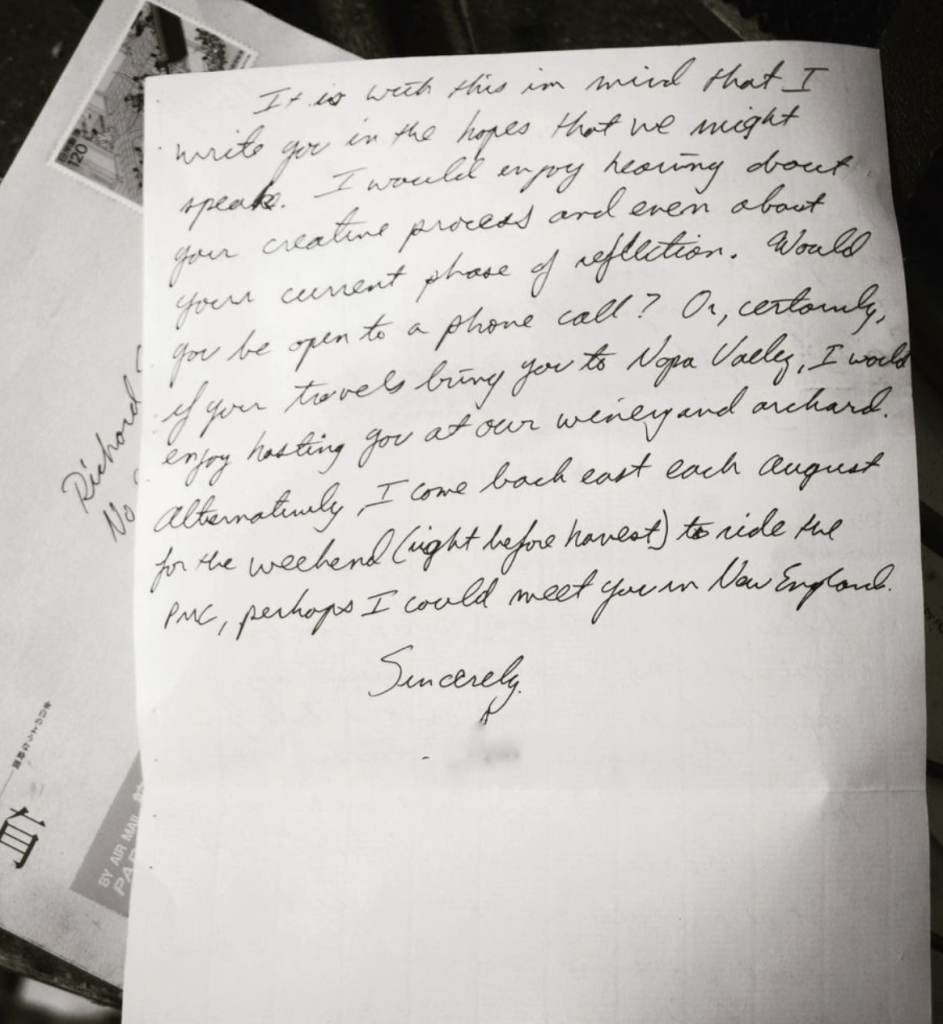 It is with this in mind that I
write you in the hopes that we might
speak. I would enjoy hearing about
your creative process and even about
your current phase of reflection. Would
you be open to a phone call? Or, certainly,
if your travels bring you to Napa Valley, I would
enjoy hosting you at our winery and orchard.
Alternatively, I come back east each August
for the weekend (right before harvest) to ride the
PMC, perhaps I could meet you in New England.
Sincerely,
120
Richard
No
BY AIR MAIL
PAR